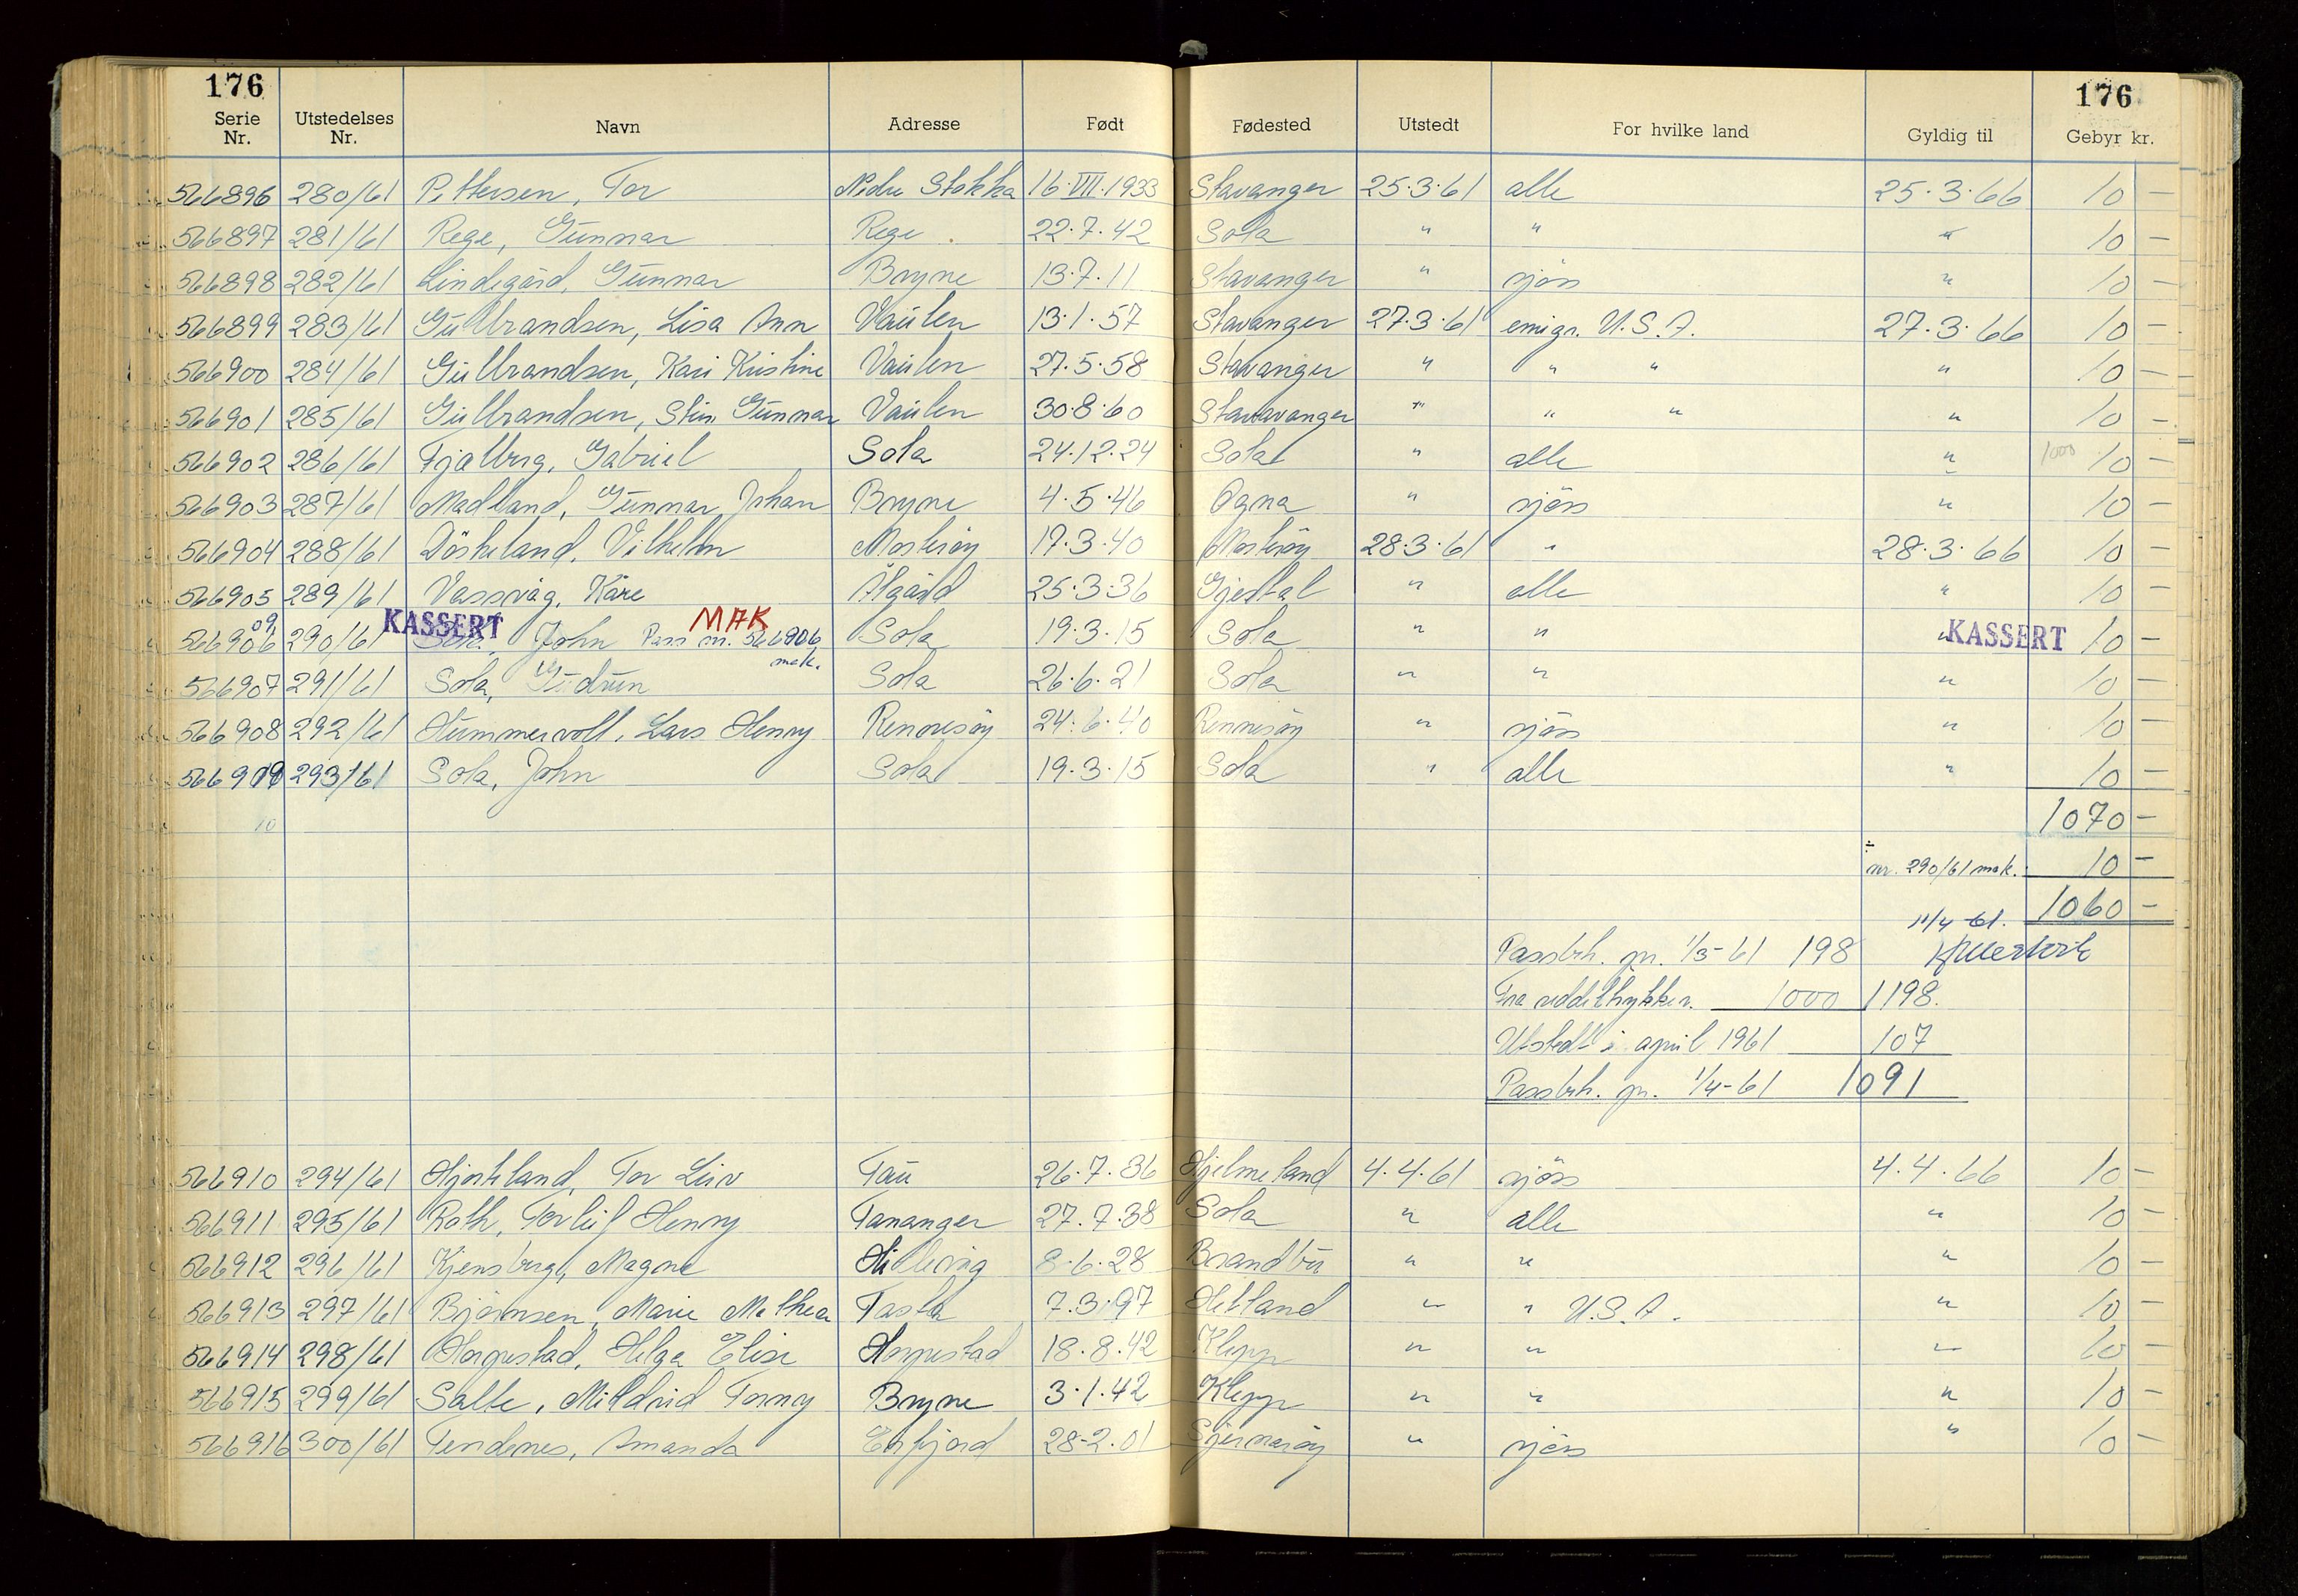 176 176
Serie Nr. Utstedelses Nr. Navn Adresse Født Fødested Utstedt For hvilke land Gyldig til Gebyr kr.
566896 280/61 Pettersen, Tor Nedre Stokka 16.VII.1933 Stavanger 25.3.61 alle 25.3.66 10 –
566897 281/61 Rege, Gunnar Rege 22.7.42 Sola " " " 10 –
566898 282/61 Lindegård, Gunnar Bryne 13.7.11 Stavanger " sjøs " 10 –
566899 283/61 Gullbrandsen, Lisa Ann Vaulen 13.1.57 Stavanger 27.3.61 emigr. U.S.A. 27.3.66 10 –
566900 284/61 Gullbrandsen, Kari Kristine Vaulen 27.5.58 Stavanger " " " " 10 –
566901 285/61 Gullbrandsen, Stein Gunnar Vaulen 30.8.60 Stavavanger " " " " 10 –
566902 286/61 Fjalberg, Gabriel Sola 24.12.24 Sola " alle " 1000 10 –
566903 287/61 Madland, Gunnar Johan Bryne 4.5.46 Ogna " sjøs " 10 –
566904 288/61 Döskeland, Vilhelm Mosterøy 17.3.40 Mosterøy 28.3.61 " 28.3.66 10 –
566905 289/61 Vassvåg, Kåre Ålgård 25.3.36 Gjestal " alle " 10 –
09 KASSERT MAK KASSERT
566906 290/61 John Pass nr. 566906 Sola 19.3.15 Sola " " " 10 –
mak.
566907 291/61 Sola, Gudrun Sola 26.6.21 Sola " " " 10 –
566908 292/61 Hummervoll, Lars Henny Rennesøy 24.6.40 Rennesøy " sjøs " 10 –
566909 293/61 Sola, John Sola 19.3.15 Sola " alle " 10 –
10 1070 –
÷ nr. 290/61 mak. 10 –
11/4-61. 1060 –
Passbeh. pr. 1/3-61 198
Fra 1000 1198.
Utstedt i april 1961 107
Passbeh. pr. 1/4-61 1091
566910 294/61 Hjorteland, Tor Leiv Tau 26.7.36 Hjelmeland 4.4.61 sjøs 4.4.66 10 –
566911 295/61 Roth, Torleif Henny Tananger 27.7.38 Sola " alle " 10 –
566912 296/61 Kjensberg, Magne Hillevåg 8.6.28 Brandbu " " " 10 –
566913 297/61 Bjørnsen, Marie Mathea Tasta 7.3.97 Hetland " " U.S.A. " 10 –
566914 298/61 Horpestad, Helga Elise Horpestad 18.8.42 Klepp " " " 10 –
566915 299/61 Salte, Mildrid Torny Bryne 3.1.42 Klepp " " " 10 –
566916 300/61 Tendenes, Amanda Erfjord 28-2.01 Sjernarøy " sjøs " 10 –